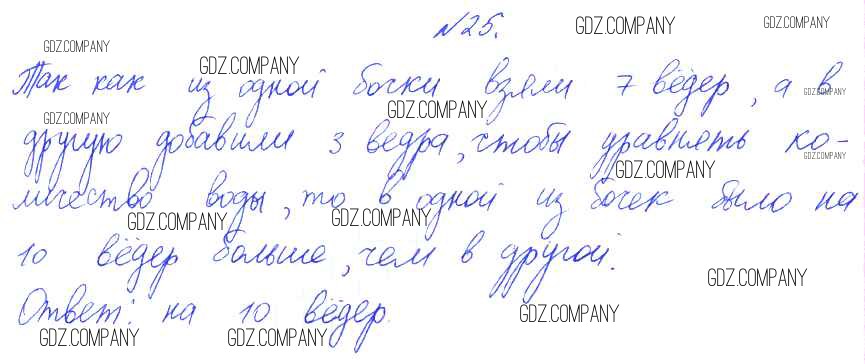 №25.
GDZ.COMPANY GDZ.COMPANY GDZ.COMPANY
GDZ.COMPANY
Так как из одной бочки взяли 7 вёдер, а в
GDZ.COMPANY GDZ.COMPANY GDZ.COMPANY
другую добавили 3 ведра, чтобы уравнять ко-
GDZ.COMPANY GDZ.COMPANY
личество воды, то в одной из бочек было на
GDZ.COMPANY GDZ.COMPANY
10 вёдер больше, чем в другой.
GDZ.COMPANY
Ответ: на 10 вёдер.
GDZ.COMPANY GDZ.COMPANY GDZ.COMPANY